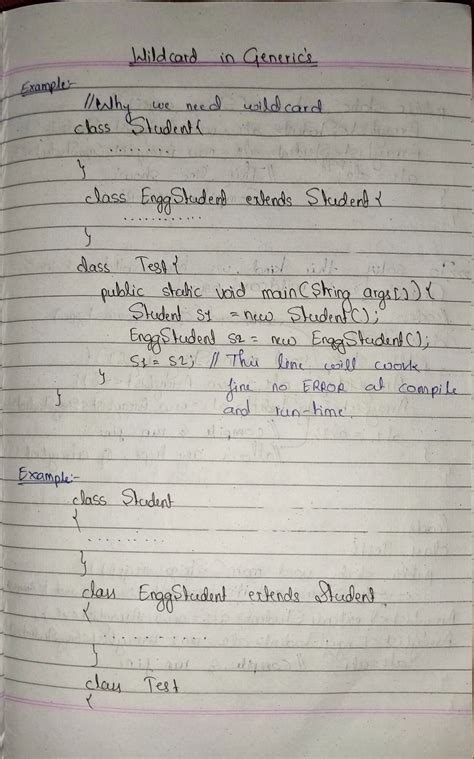 Wildcard in Generic's
Example:-
//Why we need wildcard
class Student{
.........
}
class EnggStudent extends Student{
............
}
class Test{
public static void main(String args[]){
Student s1 = new Student();
EnggStudent s2 = new EnggStudent();
s1 = s2; // This line will work
} fine no ERROR at compile
} and run-time.
Example:-
class Student
{
.......
}
class EnggStudent extends Student
{
..........
}
class Test
{